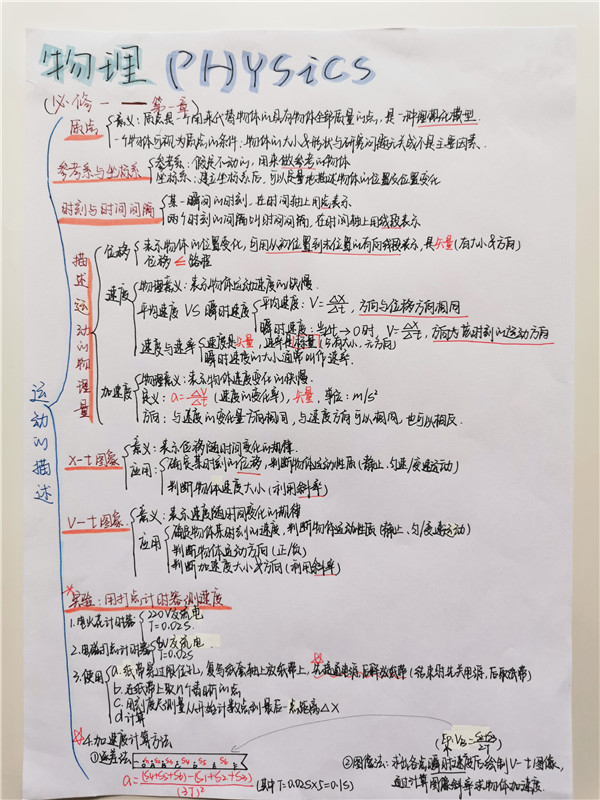 物理 PHYSics
(必修一 — 第一章)
运动的描述
质点
意义：质点是一个用来代替物体的具有物体全部质量的点，是一种理想化模型.
一个物体可视为质点的条件：物体的大小和形状与研究问题无关或不是主要因素.
参考系与坐标系
参考系：假定不动的，用来做参考的物体
坐标系：建立坐标系后，可以定量地描述物体的位置及位置变化
时刻与时间间隔
某一瞬间的时刻，在时间轴上用点表示
两个时刻的间隔叫时间间隔，在时间轴上用线段表示
描述运动的物理量
位移
表示物体的位置变化，可用从初位置到末位置的有向线段表示，是矢量(有大小&方向)
位移 ≤ 路程
速度
物理意义：表示物体运动速度的快慢.
平均速度 VS 瞬时速度
平均速度：V=△X/△t，方向与位移方向相同
瞬时速度：当△t→0时，V=△X/△t，方向为某时刻的运动方向
速度与速率
速度是矢量，速率是标量(只有大小，无方向)
瞬时速度的大小通常叫作速率.
加速度
物理意义：表示物体速度变化的快慢.
定义：a=△V/△t (速度变化率)，矢量，单位：m/s²
方向：与速度的变化量方向相同，与速度方向可以相同，也可以相反.
X-t图象
意义：表示位移随时间变化的规律.
应用：
确定某时刻的位移，判断物体运动性质(静止、匀速/变速运动)
判断物体速度大小(利用斜率)
V-t图象
意义：表示速度随时间变化的规律
应用
确定物体某时刻的速度，判断物体运动性质(静止、匀/变速运动)
判断物体运动方向(正/负)
判断加速度大小&方向(利用斜率)
*实验：用打点计时器测速度
1.电火花计时器
220V交流电
T=0.02S
2.电磁打点计时器
8V交流电
T=0.02S
3.使用
a.纸带穿过限位孔，复写纸套轴上放纸带上，先接通电源后释放纸带(结束时先关电源，后取纸带)
b.在纸带上取n个清晰的点
c.用刻度尺测量从开始计数点到最后一点距离△X
d.计算
4.加速度计算方法
①逐差法
S1 S2 S3 S4 S5 S6
a=(S4+S5+S6)-(S1+S2+S3)/(3T)² (其中T=0.02S×5=0.1S)
②图像法：求出各点瞬时速度后绘制V-t图像，
通过计算图像斜率求物体加速度.